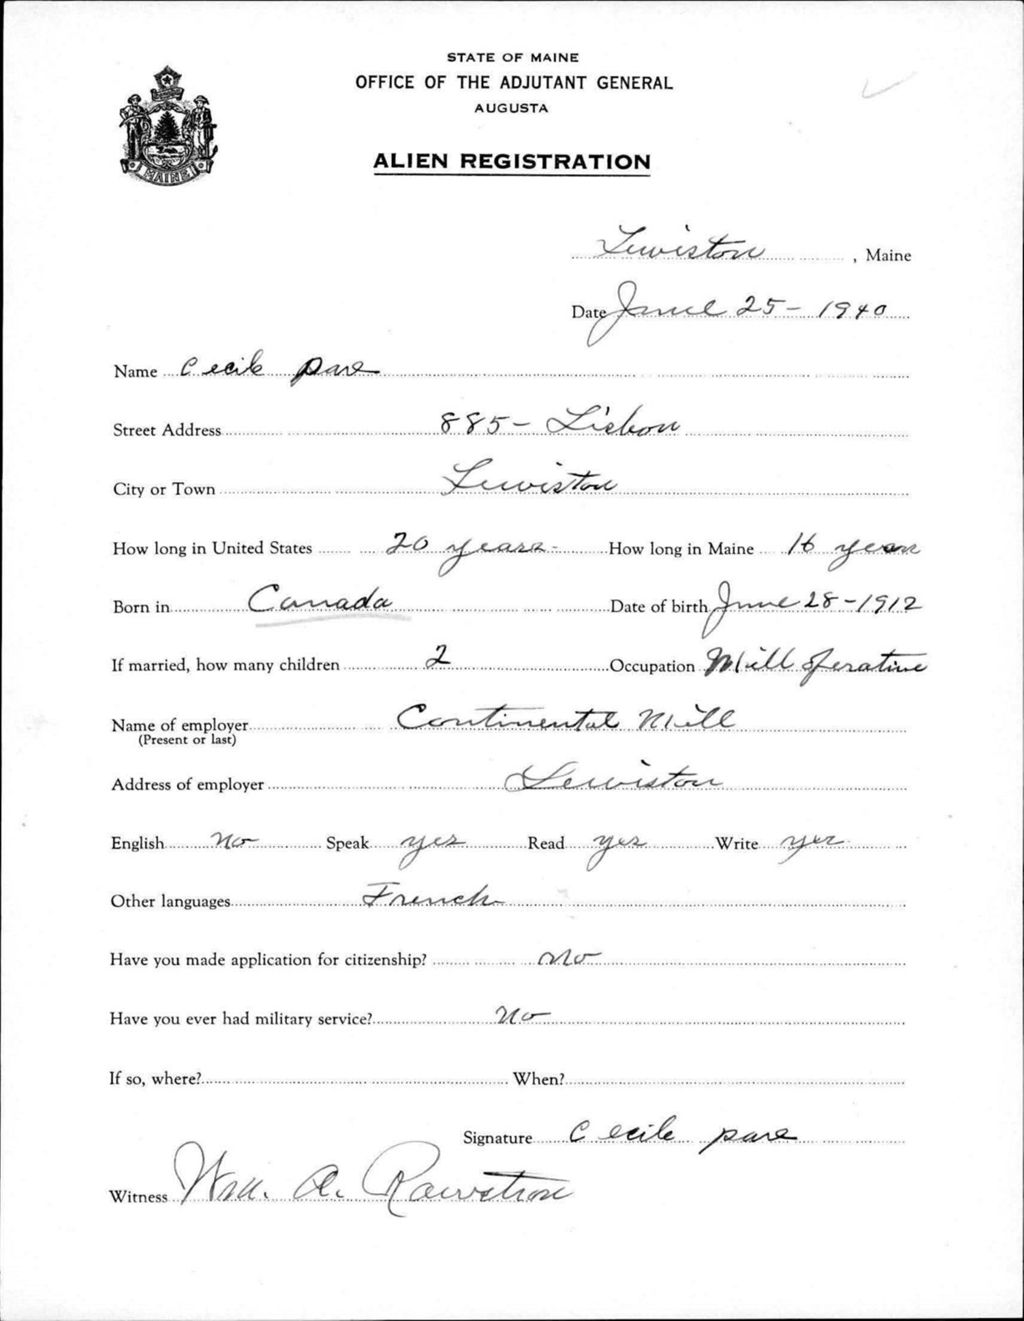 STATE OF MAINE
OFFICE OF THE ADJUTANT GENERAL
AUGUSTA
ALIEN REGISTRATION
MAINE
Lewiston, Maine
Date June 25 - 1940
Name Cecile pare
Street Address 885 - Lisbon
City or Town Lewiston
How long in United States 20 years - How long in Maine 16 years
Born in Canada Date of birth June 28 - 1912
If married, how many children 2 Occupation Mill operative
Name of employer Continental Mill
(Present or last)
Address of employer Lewiston
English No Speak yes Read yes Write yes
Other languages French
Have you made application for citizenship? No
Have you ever had military service? No
If so, where? When?
Signature Cecile pare
Witness Wm. A. Rawstron